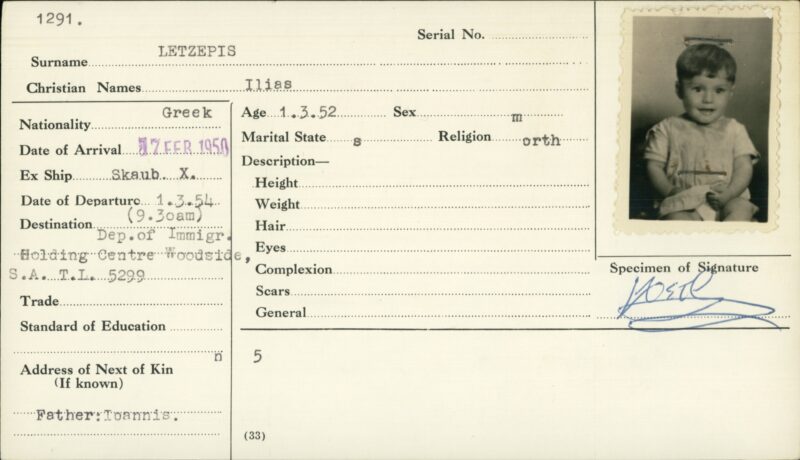 1291.
Serial No.
Surname LETZEPIS
Christian Names Ilias
Nationality Greek
Date of Arrival 17 FEB 1950
Ex Ship Skaub. X.
Date of Departure 1.3.54
(9.30am)
Destination Dep.of Immigr.
Holding Centre Woodside,
S.A. T.L. 5299
Trade
Standard of Education
n
Address of Next of Kin
(If known)
Father:Ioannis.
Age 1.3.52 Sex m
Marital State s Religion orth
Description—
Height
Weight
Hair
Eyes
Complexion
Scars
General
5
(33)
Specimen of Signature